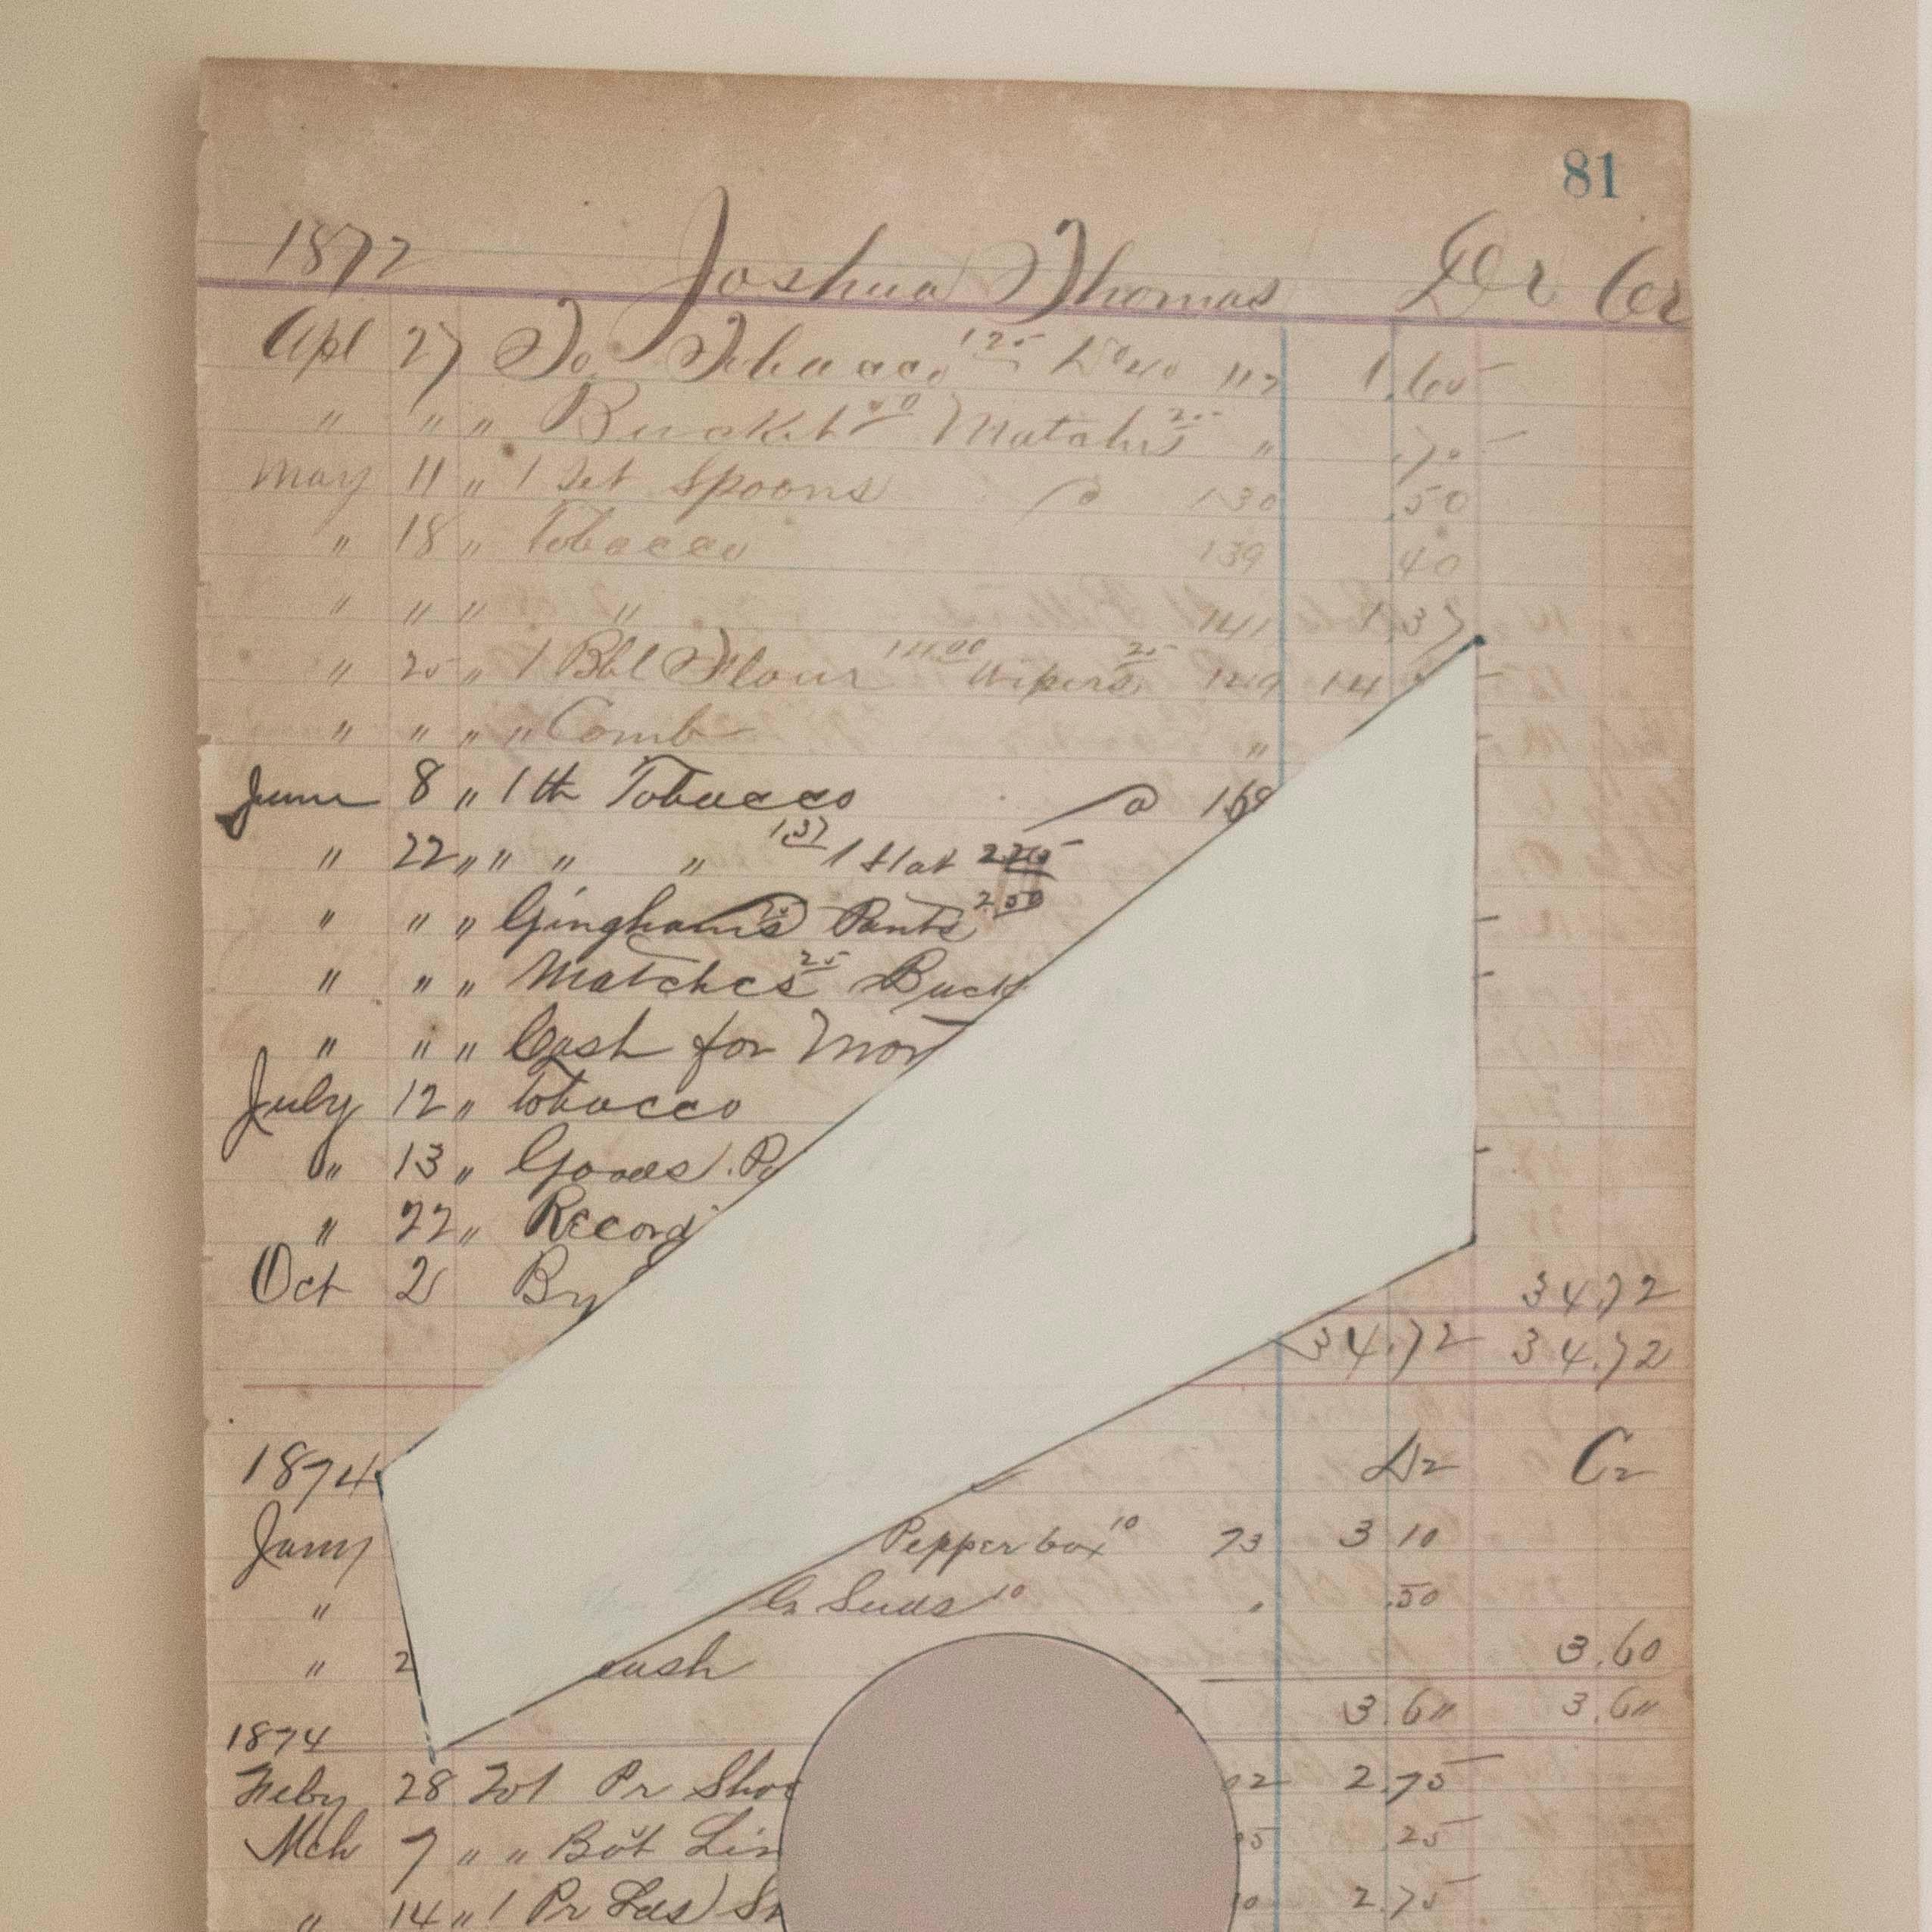 81
1872 Joshua Thomas Dr Cr
Apl 27 To Tobacco 1.25 117 1.65
" " " Bucket 50 Matches 25 " .75
May 11 " 1 Set Spoons 130 .50
" 18 " Tobacco 139 .40
" " " " 141 1.37
" 25 " 1 Bbl Flour 14.00 Wipers 25 149 14
" " " " Comb "
June 8 " 1 lb Tobacco 168
" 22 " " " " 1.37 1 Hat 2.25
" " " Ginghams 25 Pants 2.50
" " " Matches 25 Buck
" " " Cash for Mon
July 12 " Tobacco
" 13 " Goods. P
" 22 " Record
Oct 2 By 34.72
34.72 34.72
1874 Dr Cr
Jany Pepper box 10 73 3 10
" Seeds 10 " .50
" 2 cash 3.60
3.6" 3.6"
1874
Feby 28 To 1 Pr Shoe 2 2.75
Mch 7 " " Bot Lin 5 .25
" 14 " 1 Pr Las Sh 0 2.75